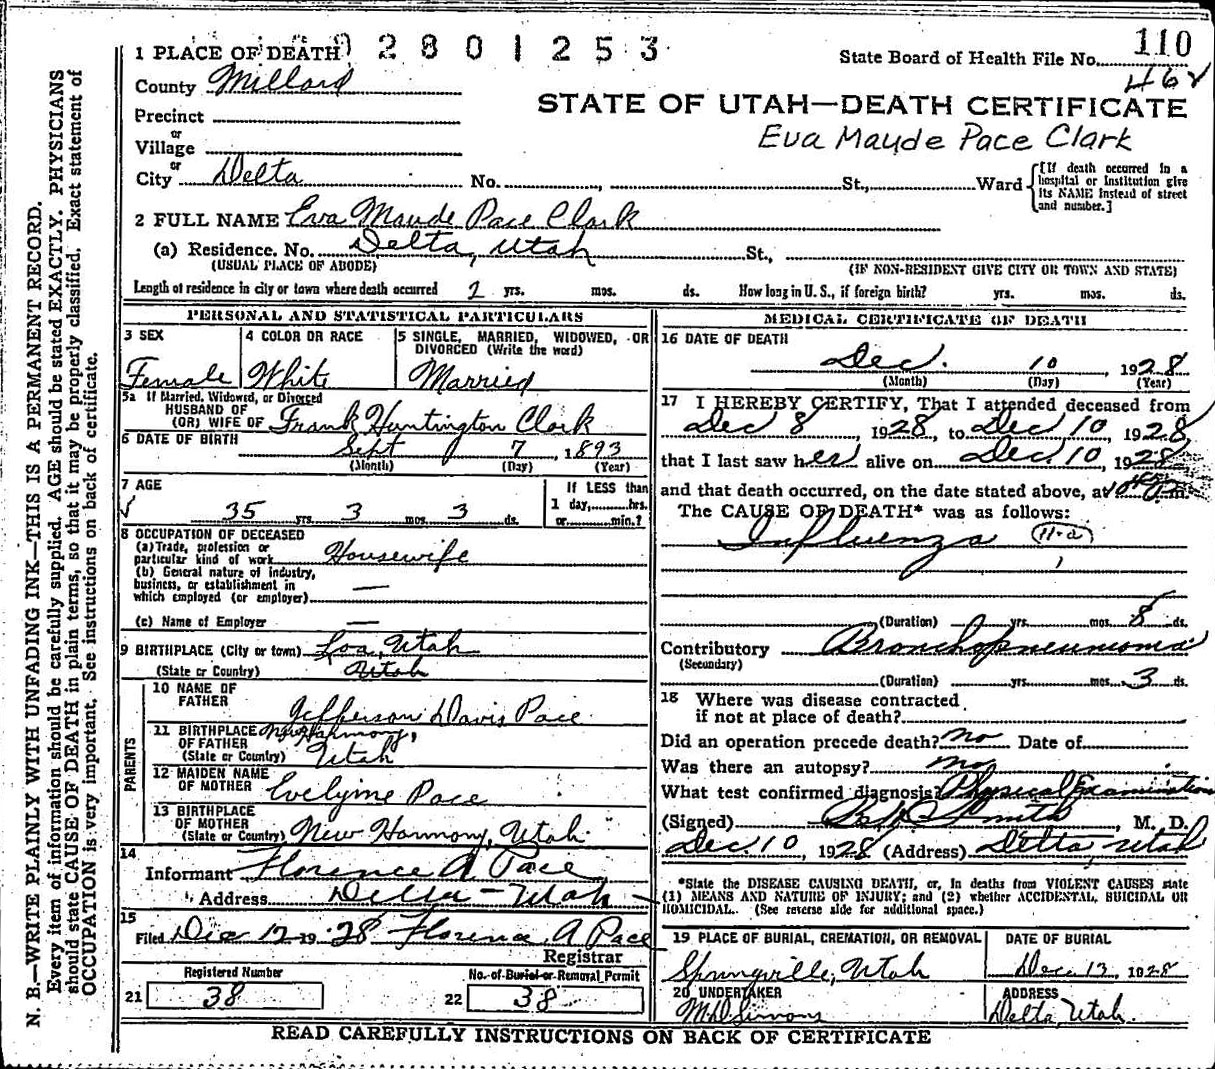 N. B.—WRITE PLAINLY WITH UNFADING INK—THIS IS A PERMANENT RECORD.
Every item of information should be carefully supplied. AGE should be stated EXACTLY. PHYSICIANS
should state CAUSE OF DEATH in plain terms, so that it may be properly classified. Exact statement of
OCCUPATION is very important. See instructions on back of certificate.
2801253
110
State Board of Health File No.
462
STATE OF UTAH—DEATH CERTIFICATE
Eva Maude Pace Clark
1 PLACE OF DEATH
County Millard
Precinct
or
Village
or
City Delta No. St., Ward
[If death occurred in a
hospital or institution give
its NAME instead of street
and number.]
2 FULL NAME Eva Maude Pace Clark
(a) Residence. No. Delta, Utah St.,
(USUAL PLACE OF ABODE) (IF NON-RESIDENT GIVE CITY OR TOWN AND STATE)
Length of residence in city or town where death occurred yrs. mos. ds. How long in U. S., if foreign birth? yrs. mos. ds.
PERSONAL AND STATISTICAL PARTICULARS
3 SEX
Female
4 COLOR OR RACE
White
5 SINGLE, MARRIED, WIDOWED, OR
DIVORCED (Write the word)
Married
5a If Married, Widowed, or Divorced
HUSBAND OF
(OR) WIFE OF Frank Huntington Clark
6 DATE OF BIRTH
Sept 7, 1893
(Month) (Day) (Year)
7 AGE
35 yrs. 3 mos. 3 ds.
If LESS than
1 day, hrs.
or min.?
8 OCCUPATION OF DECEASED
(a) Trade, profession or
particular kind of work Housewife
(b) General nature of industry,
business, or establishment in
which employed (or employer) —
(c) Name of Employer —
9 BIRTHPLACE (City or town) Loa, Utah
(State or Country) Utah
PARENTS
10 NAME OF
FATHER Jefferson Davis Pace
11 BIRTHPLACE New Harmony,
OF FATHER
(State or Country) Utah
12 MAIDEN NAME
OF MOTHER Evelyine Pace
13 BIRTHPLACE
OF MOTHER
(State or Country) New Harmony, Utah
14
Informant Florence A. Pace
Address Delta - Utah
15
Filed Dec 12 1928 Florence A Pace
Registrar
Registered Number
21 38
No. of Burial or Removal Permit
22 38
MEDICAL CERTIFICATE OF DEATH
16 DATE OF DEATH
Dec. 10, 1928
(Month) (Day) (Year)
17 I HEREBY CERTIFY, That I attended deceased from
Dec 8, 1928, to Dec 10, 1928,
that I last saw her alive on Dec. 10, 1928
and that death occurred, on the date stated above, at m.
The CAUSE OF DEATH* was as follows:
Influenza 11-a
(Duration) yrs. mos. 8 ds.
Contributory Bronchopneumonia
(Secondary)
(Duration) yrs. mos. 3 ds.
18 Where was disease contracted
if not at place of death?
Did an operation precede death? no Date of
Was there an autopsy? no
What test confirmed diagnosis? Physical Examination
(Signed) Smith, M. D.
Dec 10, 1928 (Address) Delta, Utah
*State the DISEASE CAUSING DEATH, or, in deaths from VIOLENT CAUSES state
(1) MEANS AND NATURE OF INJURY; and (2) whether ACCIDENTAL, SUICIDAL OR
HOMICIDAL. (See reverse side for additional space.)
19 PLACE OF BURIAL, CREMATION, OR REMOVAL
Springville, Utah
DATE OF BURIAL
Dec. 13, 1928
20 UNDERTAKER
Simons
ADDRESS
Delta, Utah.
READ CAREFULLY INSTRUCTIONS ON BACK OF CERTIFICATE